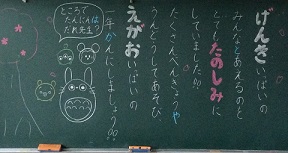 げんきいっぱいの
みんなとあえるのと
とてもたのしみに
していました!!
たくさんべんきょうや
うんどうしてあそび
えがおいっぱいの
年かんにしましょう!!
ところで
たんにんは
だれ先生?